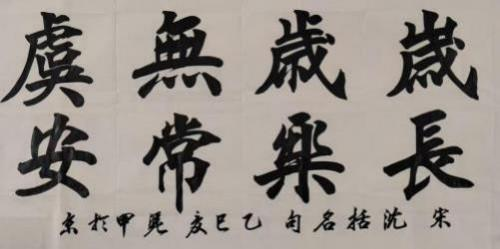 嵗歲無虞
長樂常安
宋沈括名句乙巳夏甲於京